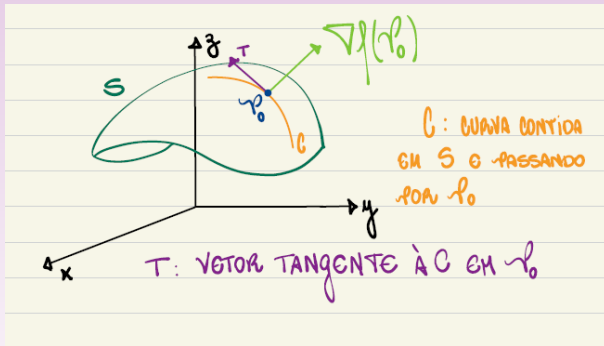 z
T
∇f(P₀)
S
P₀
C
C: CURVA CONTIDA
EM S E PASSANDO
POR P₀
y
x
T: VETOR TANGENTE À C EM P₀